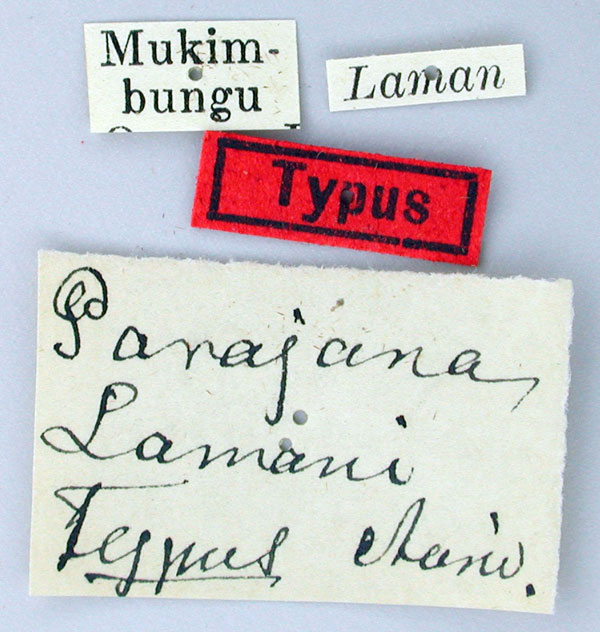 Mukim-
bungu
Laman
Typus
Parajana
Lamani
Typus Auriv.